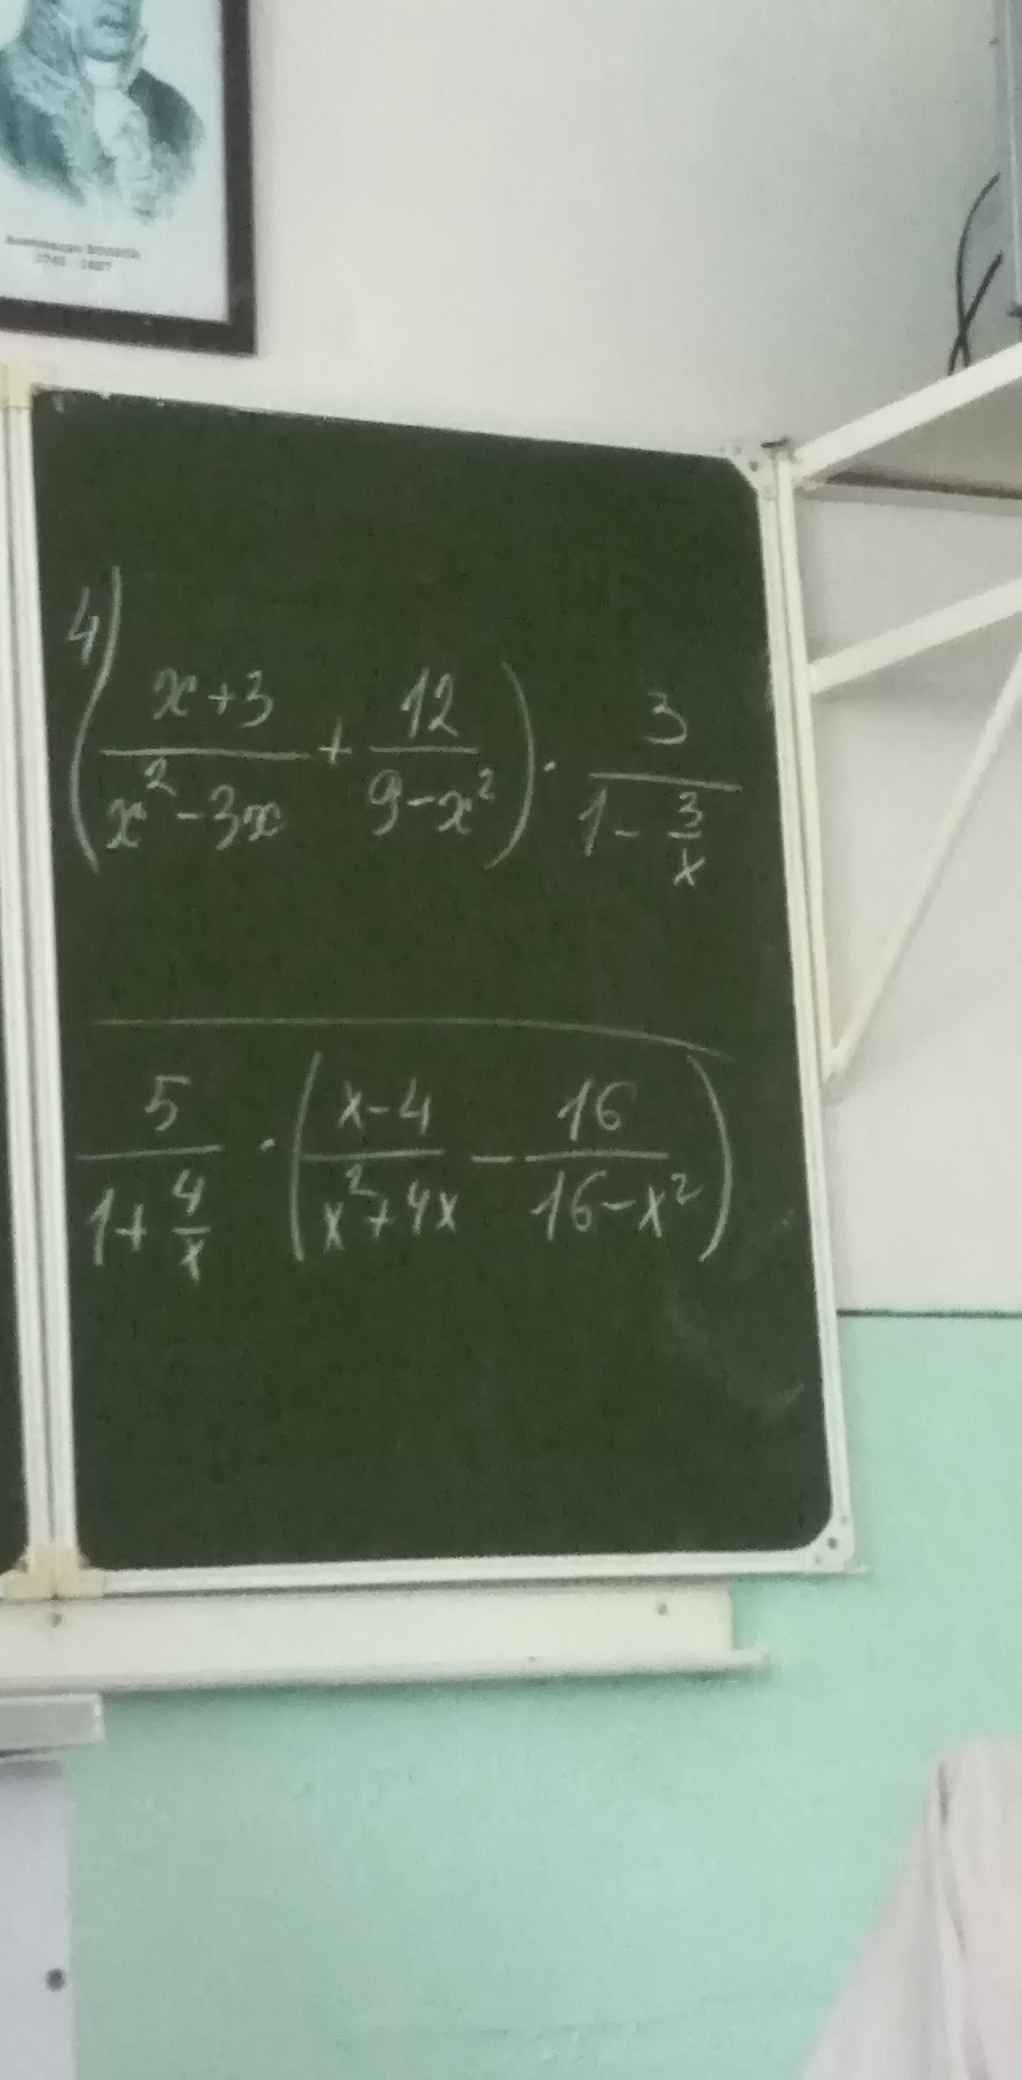 4)
(\frac{x+3}{x^2-3x} + \frac{12}{9-x^2}) \cdot \frac{3}{1-\frac{3}{x}}
\frac{5}{1+\frac{4}{x}} \cdot (\frac{x-4}{x^2+4x} - \frac{16}{16-x^2})